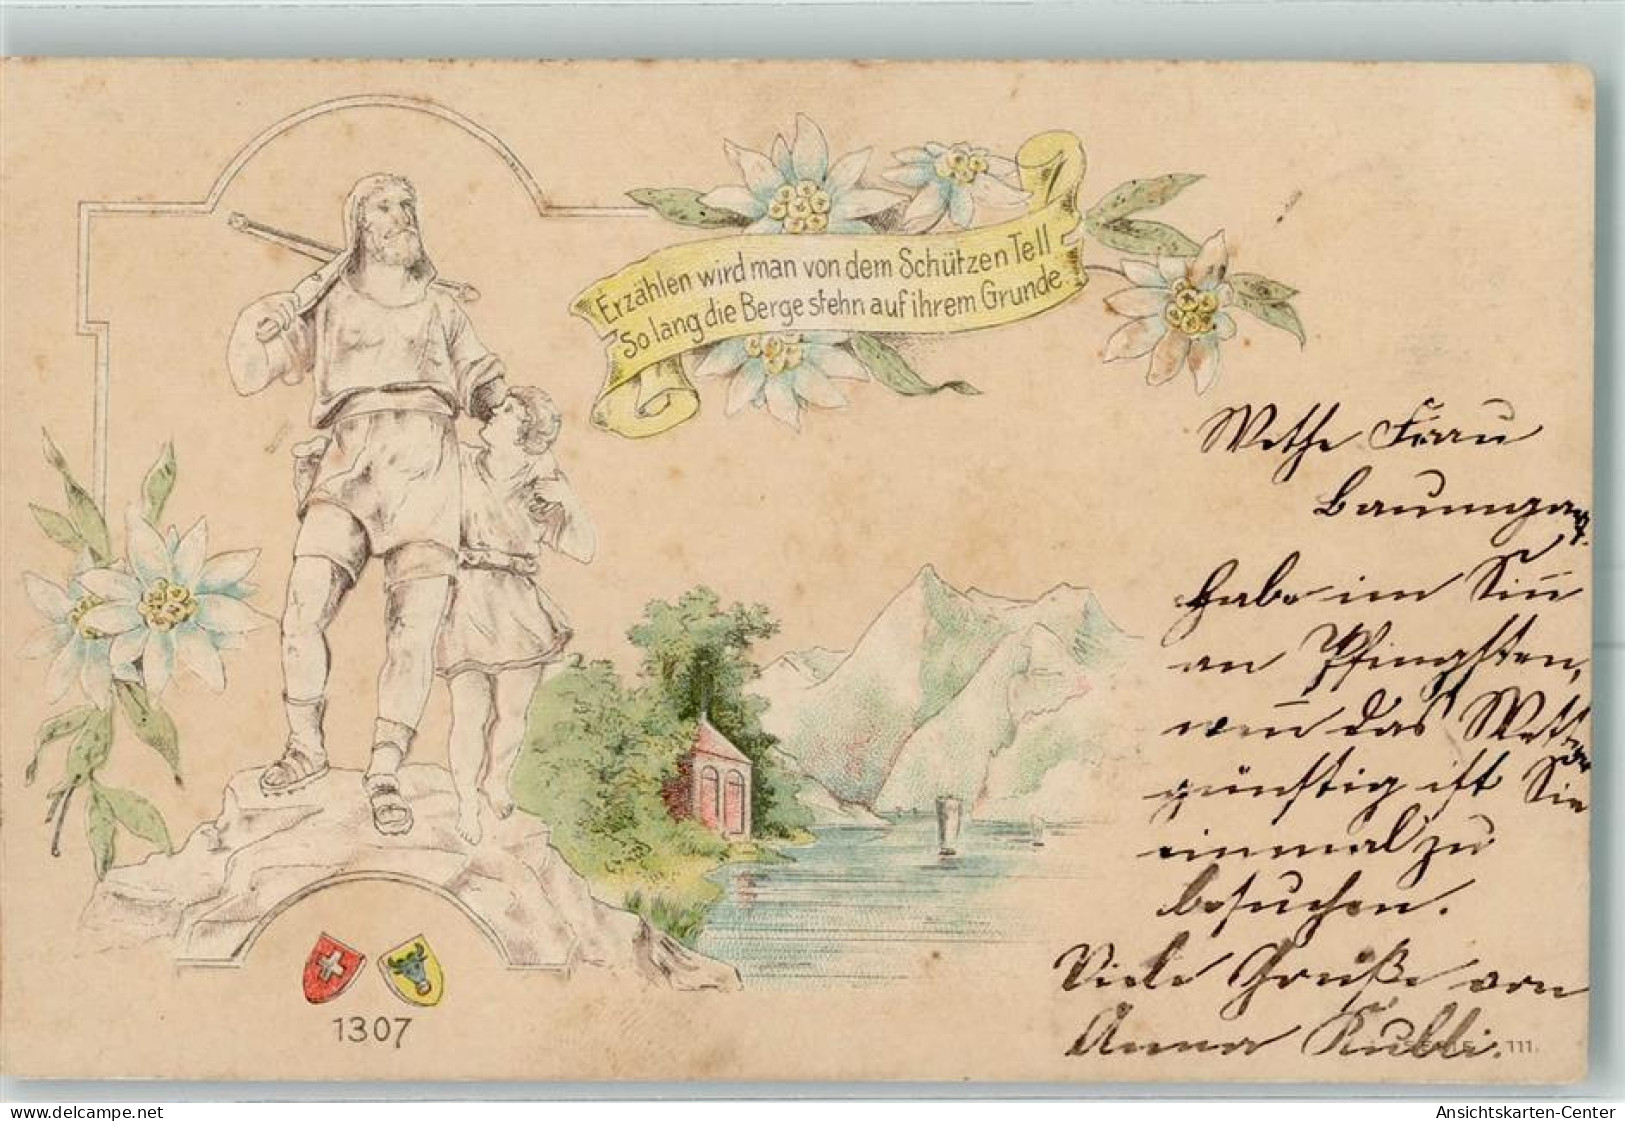 Erzählen wird man von dem Schützen Tell
So lang die Berge stehn auf ihrem Grunde
Werthe Frau
Baumgar
habe im Sin̄
an Pfingsten,
wen̄ das Wetter
günstig ist Sie
einmal zu
besuchen.
Viele Grüße von
Anna
1307
111.
www.delcampe.net
Ansichtskarten-Center